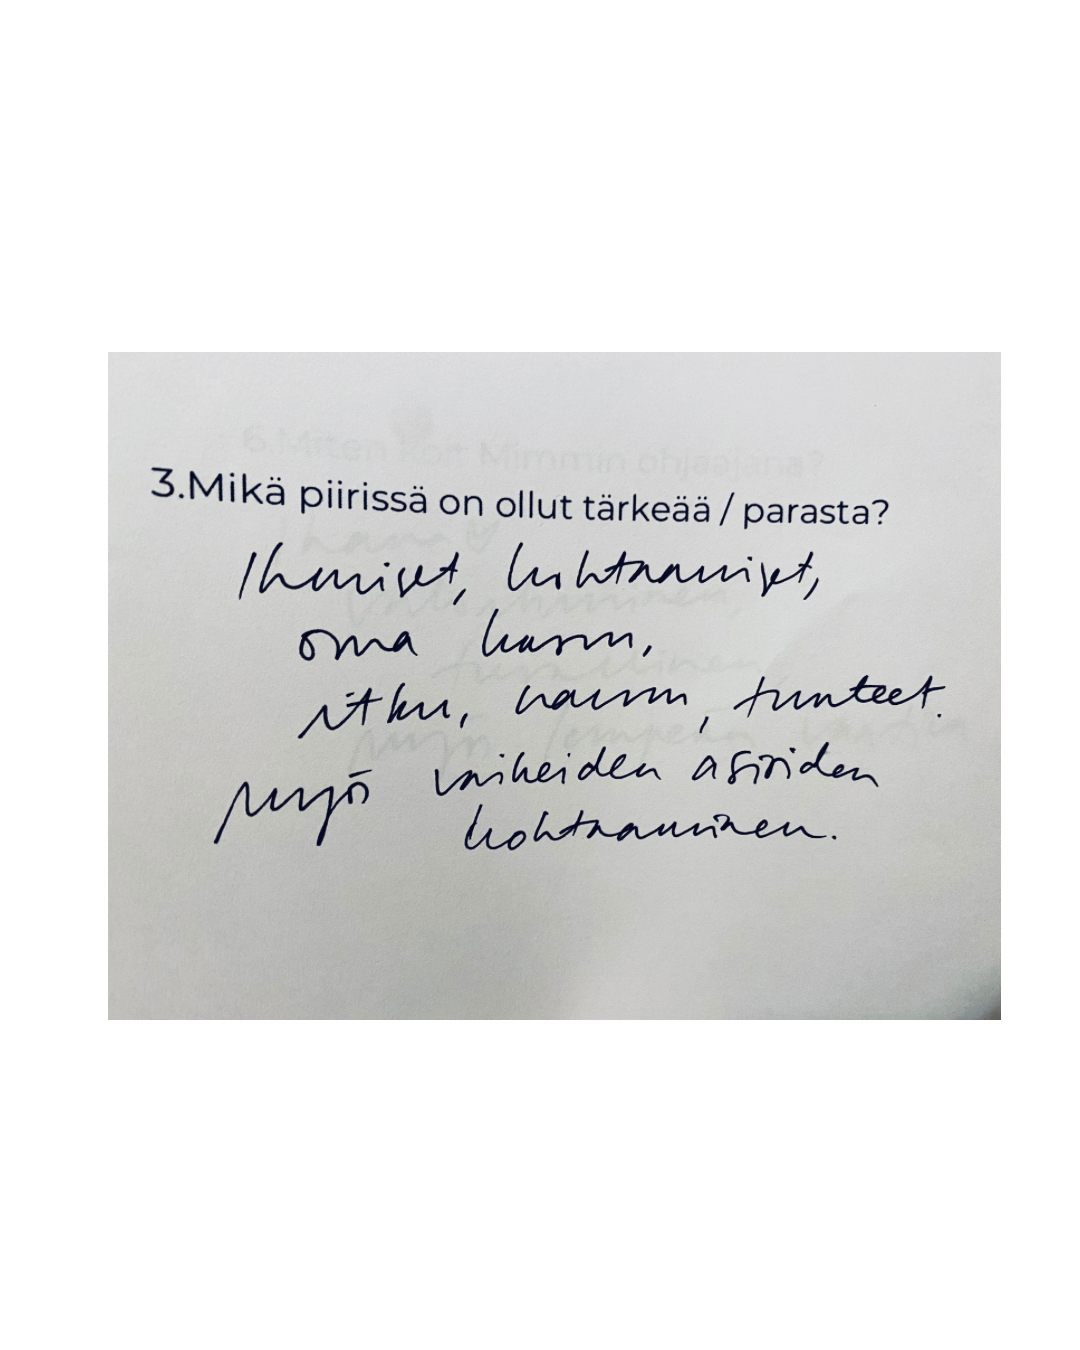 3.Mikä piirissä on ollut tärkeää / parasta?
Ihmiset, kohtaamiset,
oma kasvu,
itku, nauru, tunteet.
myös vaikeiden asioiden
kohtaaminen.